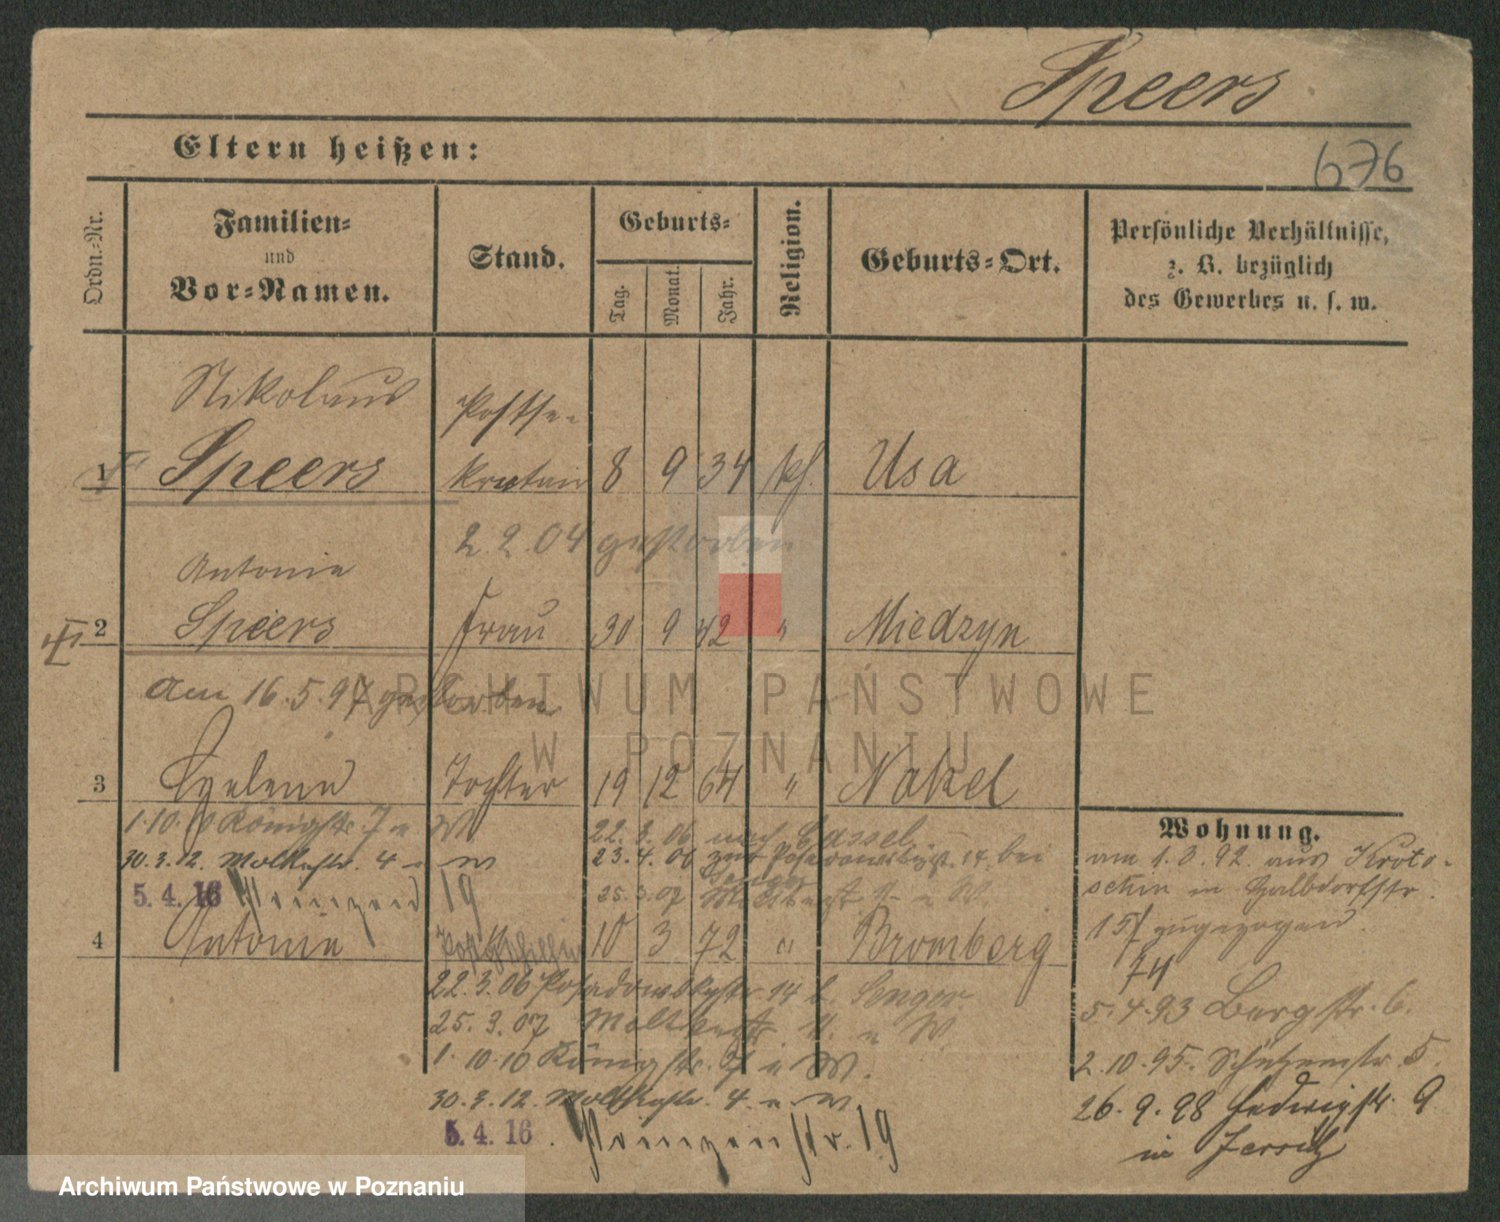 Speers
676
Eltern heißen:
Ordn.-Nr.
Familien-
und
Vor-Namen.
Stand.
Geburts-
Tag.
Monat.
Jahr.
Religion.
Geburts-Ort.
Persönliche Verhältnisse,
z. B. bezüglich
des Gewerbes u. s. w.
Nikolaus Postse-
1 Speers kretair 8 9 34 kf. Usa
2.2.04 gestorben
Antonie
2 Speers Frau 30 9 42 " Miedzyn
am 16.5.97 gestorben
ARCHIWUM PAŃSTWOWE
W POZNANIU
3 Helene Tochter 19 12 64 " Nakel
1.10.10 Königstr. 7 u W
22.3.06 nach Cassel
30.3.12. Moltkestr. 4 u W
23.4.06 Posadowskystr. 14 bei
Senger
5.4.16 Prinzenstr 19
25.3.07 Moltkestr u W.
4 Antonie Postgehilfin 10 3 72 " Bromberg
22.3.06 Posadowskystr. 14 b. Senger
25.3.07 Moltkestr u W.
1.10.10 Königstr. 7 u W.
30.3.12. Moltkestr. 4. u. W.
5.4.16. Prinzenstr. 19
Wohnung.
am 1.3.92. aus Kroto-
schin in Halbdorfstr.
15 zugezogen.
74
5.4.93 Bergstr. 6.
2.10.95. Schützenstr. 5.
26.9.98 Hedwigstr. 9
in Jersitz
Archiwum Państwowe w Poznaniu